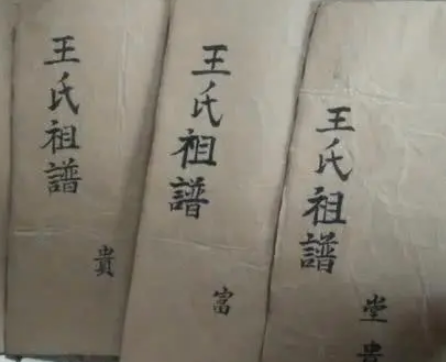 王氏祖譜
貴
王氏祖譜
富
王氏祖譜
堂貴